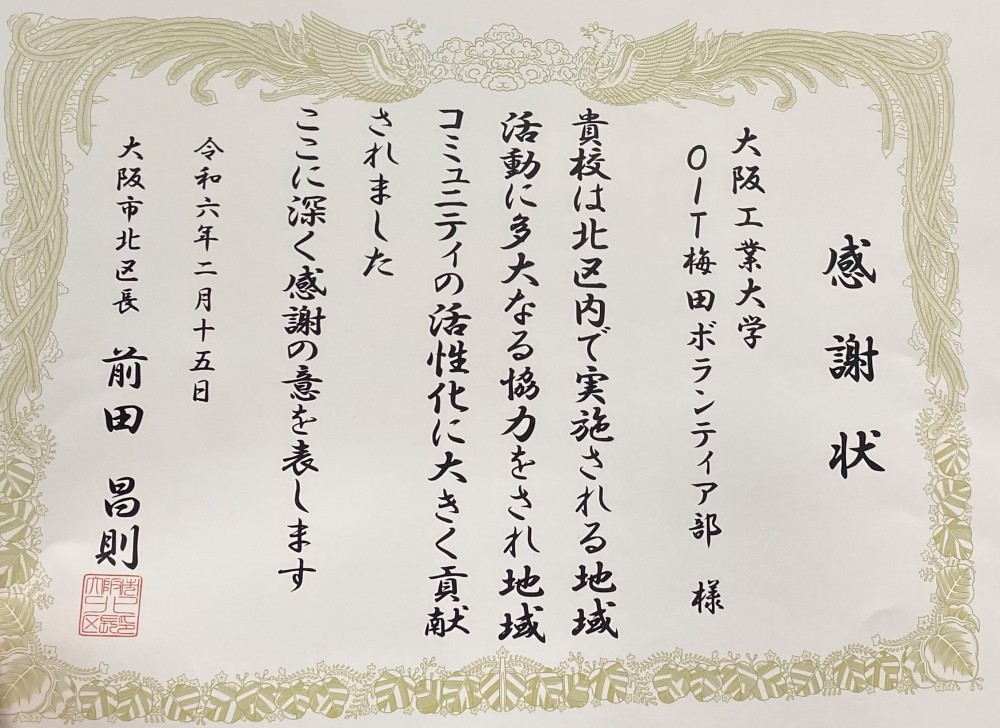 感謝状
大阪工業大学
OIT梅田ボランティア部 様
貴校は北区内で実施される地域
活動に多大なる協力をされ地域
コミュニティの活性化に大きく貢献
されました
ここに深く感謝の意を表します
令和六年二月十五日
大阪市北区長 前田 昌則